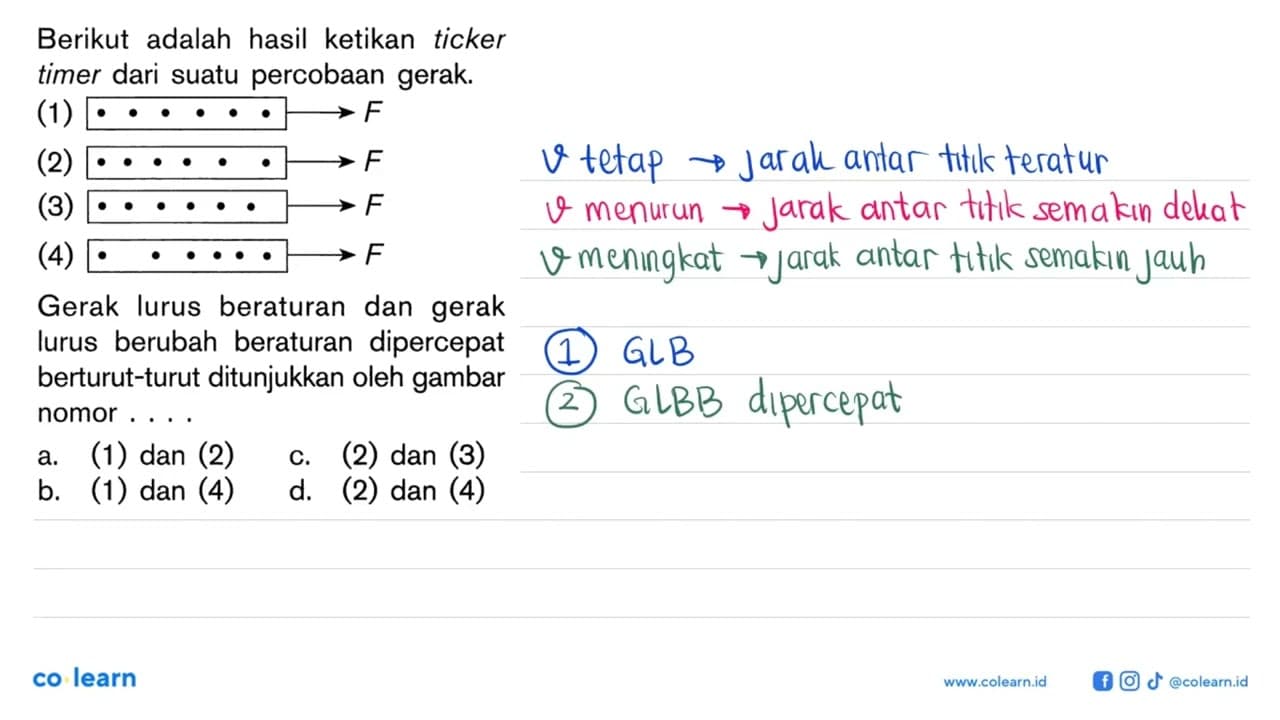 Berikut adalah hasil ketikan ticker
timer dari suatu percobaan gerak.
(1) F
(2) F
(3) F
(4) F
Gerak lurus beraturan dan gerak
lurus berubah beraturan dipercepat
berturut-turut ditunjukkan oleh gambar
nomor . . . .
a. (1) dan (2) c. (2) dan (3)
b. (1) dan (4) d. (2) dan (4)
v tetap → jarak antar titik teratur
v menurun → jarak antar titik semakin dekat
v meningkat → jarak antar titik semakin jauh
1 GLB
2 GLBB dipercepat
co learn
www.colearn.id
@colearn.id